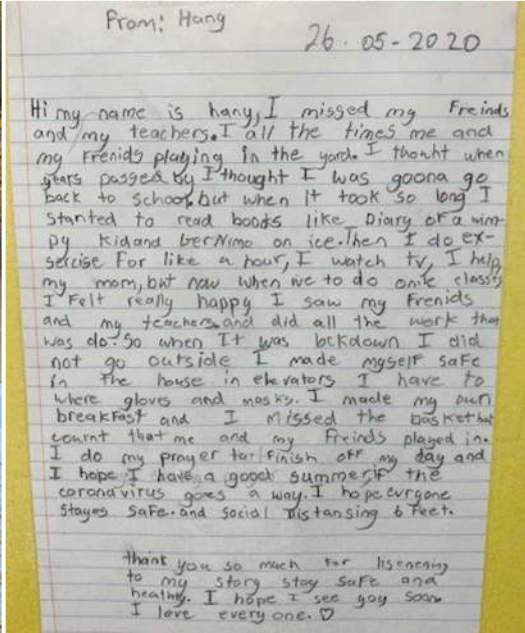 From: Hang
26.05-2020
Hi my name is hany, I missed my Freinds
and my teachers. I all the times me and
my Frenids playing in the yard. I thonht when
years passed by I thought I was goona go
back to school, but when it took so long I
stanted to read books like Diary of a wim-
py Kid and berNimo on ice. Then I do ex-
sercise For like a hour, I watch tv, I help
my mom, but now when we to do onile classes
I Felt really happy I saw my Frenids
and my teachers, and did all the work that
was do. So when It was lockdown I did
not go outside I made myself safe
in the house in elevators I have to
where gloves and masks. I made my own
breakfast and I missed the basketball
cournt that me and my Freinds played in.
I do my prayer for finish off my day and
I hope I have a good summer if the
coronavirus goes a way. I hope evrgone
stayes safe. and social Distansing 6 feet.
thank you so much for lisenening
to my story stay safe and
healthy. I hope I see you soon
I love every one. ♡